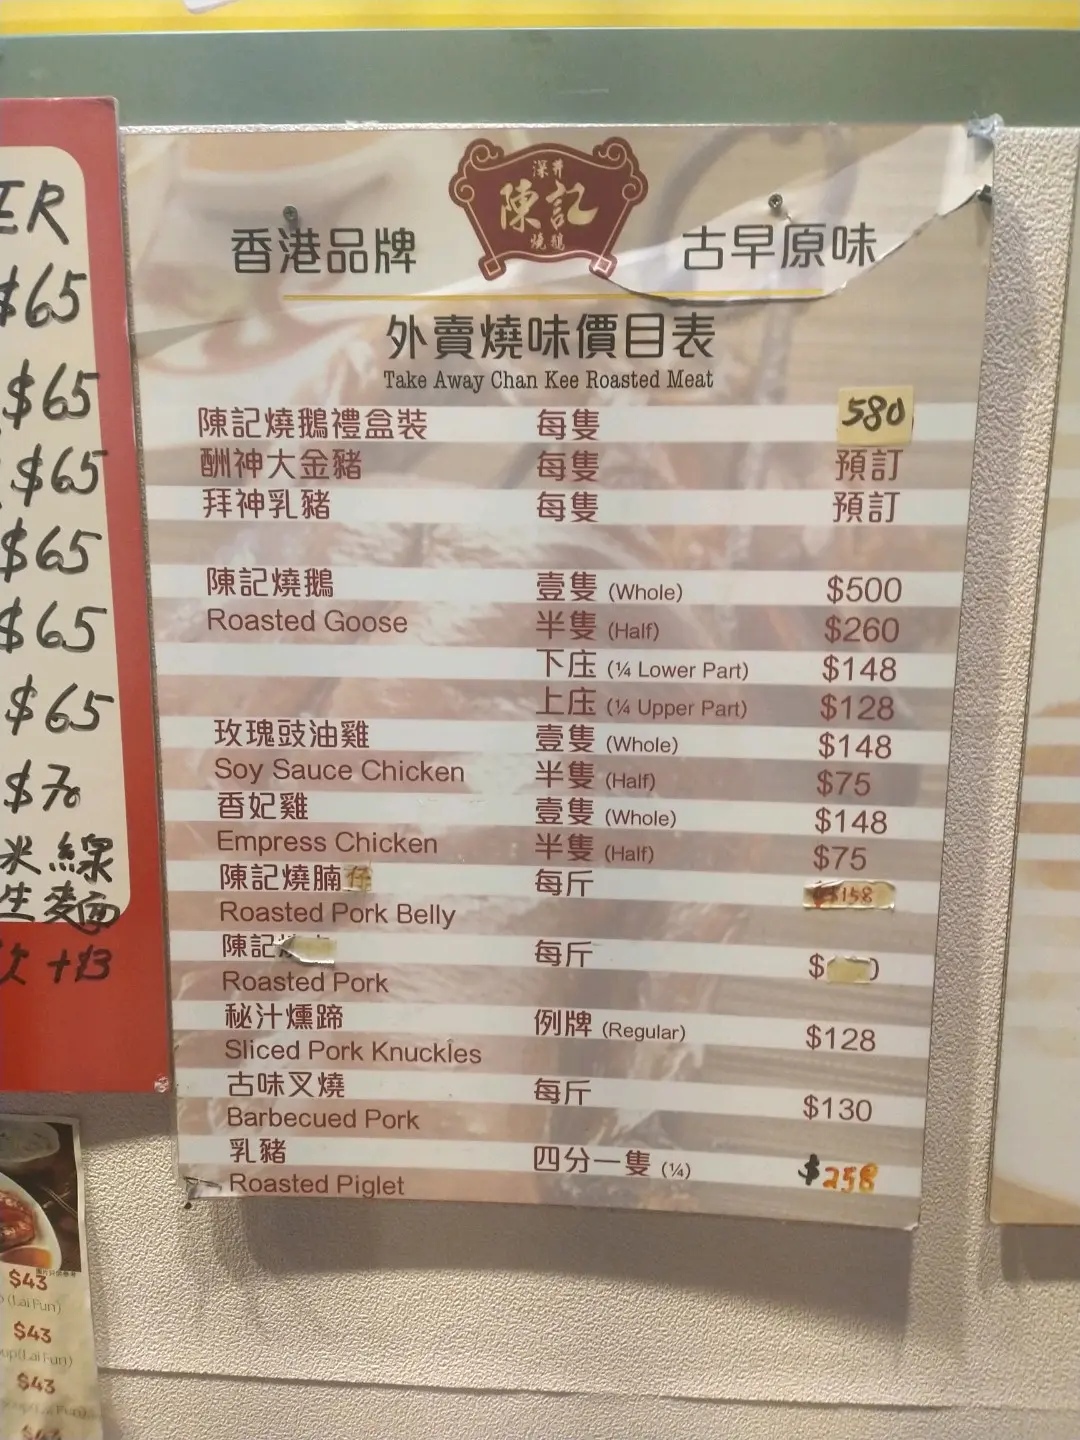 ER
$65
$65
$65
$65
$65
$65
$70
米線
生麵
+$3
深井
陳記
燒鵝
香港品牌
古早原味
外賣燒味價目表
Take Away Chan Kee Roasted Meat
陳記燒鵝禮盒裝 每隻 580
酬神大金豬 每隻 預訂
拜神乳豬 每隻 預訂
陳記燒鵝 壹隻 (Whole) $500
Roasted Goose 半隻 (Half) $260
下庄 (¼ Lower Part) $148
上庄 (¼ Upper Part) $128
玫瑰豉油雞 壹隻 (Whole) $148
Soy Sauce Chicken 半隻 (Half) $75
香妃雞 壹隻 (Whole) $148
Empress Chicken 半隻 (Half) $75
陳記燒腩仔 每斤 $158
Roasted Pork Belly
陳記 每斤 $
Roasted Pork
秘汁燻蹄 例牌 (Regular) $128
Sliced Pork Knuckles
古味叉燒 每斤 $130
Barbecued Pork
乳豬 四分一隻 (¼) $258
Roasted Piglet
$43
(Lai Fun)
$43
(Lai Fun)
$43
$43